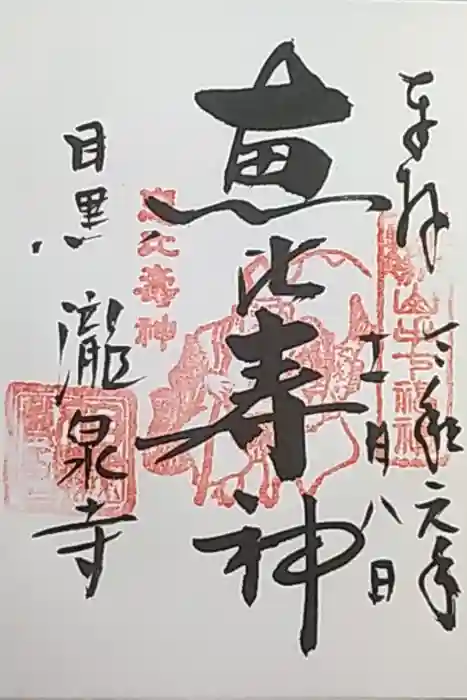 奉拝
令和元年
十二月八日
恵比寿神
恵比寿神
目黒
瀧泉寺